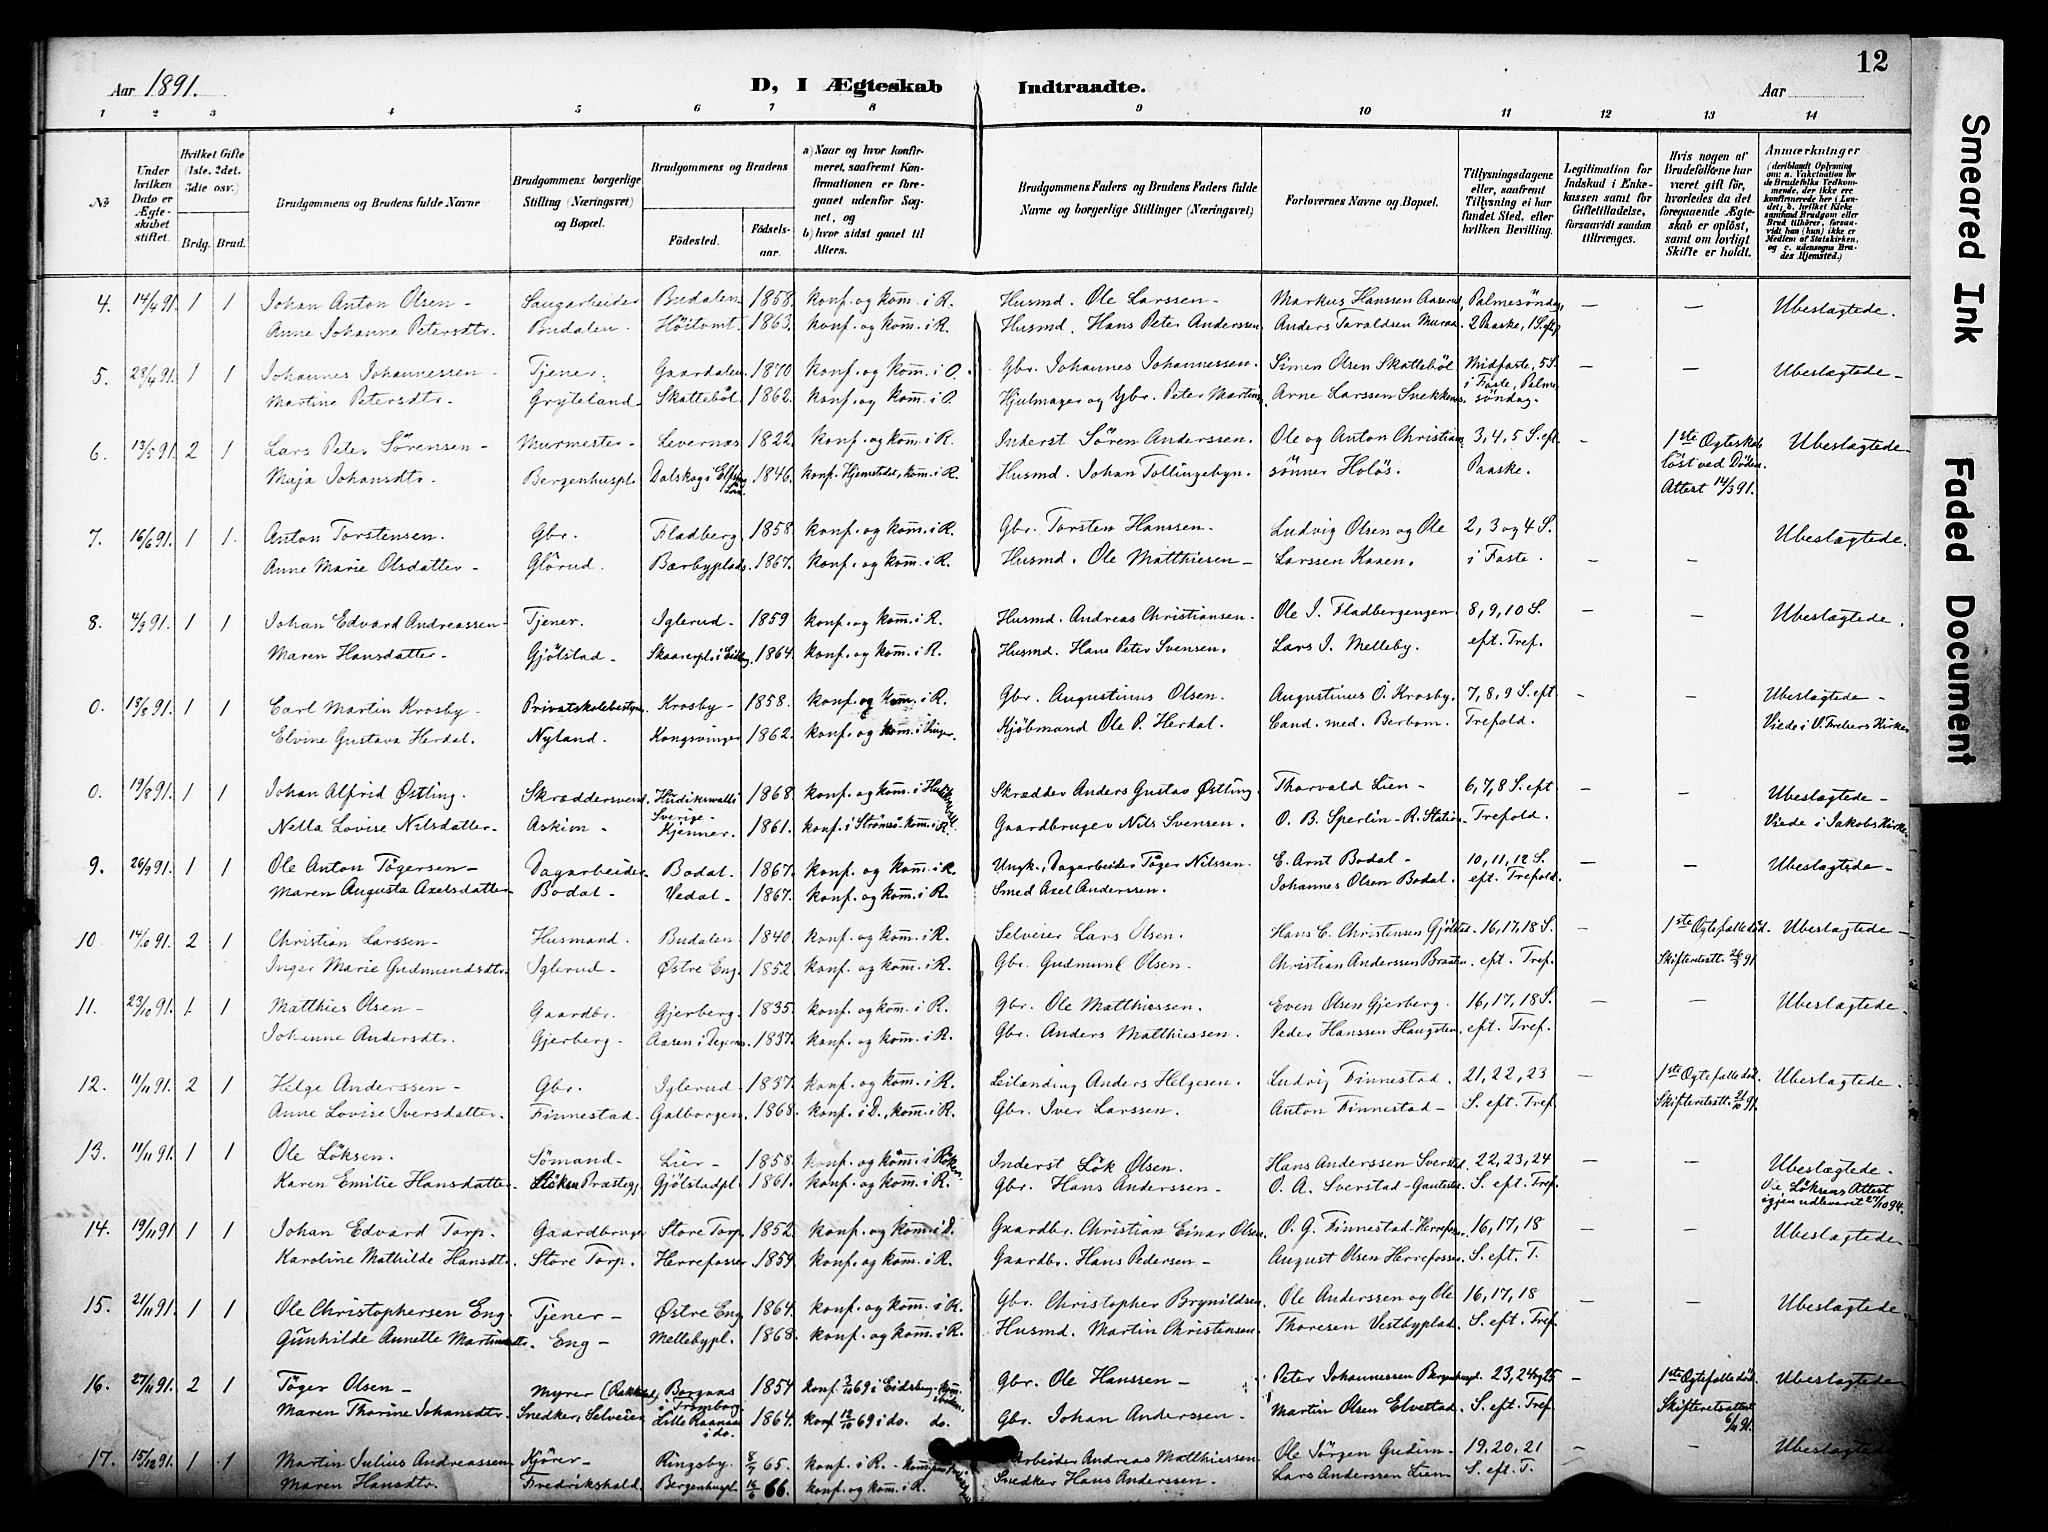 12
Aar 1891. D, I Ægteskab Indtraadte. Aar
1 2 3 4 5 6 7 8 9 10 11 12 13 14
№ | Under hvilken Dato er Ægteskabet stiftet. | Hvilket Gifte (1ste, 2det, 3die osv.) Brdg. Brud. | Brudgommens og Brudens fulde Navne | Brudgommens borgerlige Stilling (Næringsvei) og Bopæl. | Brudgommens og Brudens Fødested. Fødselsaar. | a) Naar og hvor konfirmeret, saafremt Konfirmationen er foregaaet udenfor Sognet, og b) hvor sidst gaaet til Alters. | Brudgommens Faders og Brudens Faders fulde Navne og borgerlige Stillinger (Næringsvei) | Forlovernes Navne og Bopæl. | Tillysningsdagene eller, saafremt Tillysning ei har fundet Sted, efter hvilken Bevilling. | Legitimation for Indskud i Enkekassen samt for Giftetilladelse, forsaavidt saadan tiltrænges. | Hvis nogen af Brudefolkene har været gift før, hvorledes da det foregaaende Ægteskab er opløst, samt om lovligt Skifte er holdt. | Anmærkninger (deriblandt Oplysning om: a. Vakcination for de Brudefolks Vedkommende, der ikke ere konfirmerede her i Landet; b. hvilket Kirkesamfund Brudgom eller Brud tilhører, forsaavidt han (hun) ikke er Medlem af Statskirken, og c. udensogns Brudes Hjemsted.)
4. 14/4 91. 1 1 Johan Anton Olsen – Saugarbeider Budalen 1858. konf. og kom. i R. Husmd. Ole Larssen – Markus Hanssen Aaserud, Palmesöndag, – – Ubeslægtede.
Anne Johanne Petersdtr. Budalen. Höitomt. 1863. konf. og kom. i R. Husmd. Hans Peter Anderssen. Anders Taraldsen 2 Paaske, 1 S. eft.
5. 28/4 91. 1 1 Johannes Johannessen – Tjener. Gaardalen 1870 konf. og kom. i O. Gbr. Johannes Johannessen. Simen Olsen Skatteböl Midfaste, 5 S. – – Ubeslægtede –
Martine Petersdtr. Gryteland – Skatteböl 1862. konf. og kom. i O. Hjulmager og Gbr. Peter Martins. Arne Larssen Snekkenes. i Faste, Palmesöndag.
6. 13/5 91. 2 1 Lars Peter Sörensen – Murmester – Levernæs 1822. konf. og kom. i R. Inderst Sören Anderssen. Ole og Anton Christian 3, 4, 5 S. eft. – 1ste Ægteskab Ubeslægtede –
Maja Johansdtr. Bergenhuspl. Dalskog i Elfsborg Län. 1846. konf. Hjemstdet, kom. i R. Husmd. Johan Tollingebyn. sönner Holös. Paaske. löst ved Döden.
Attest 14/3 91.
7. 16/6 91. 1 1. Anton Torstensen. Gbr. Fladberg 1858. konf. og kom. i R. Gbr. Torsten Hanssen. Ludvig Olsen og Ole 2, 3 og 4 S. Ubeslægtede.
Anne Marie Olsdatter – Glörud. Bærbyplads 1867. konf. og kom. i R. Husmd. Ole Matthiesen – Larssen Kaaen. i Faste. – –
8. 4/9 91. 1 1 Johan Edvard Andreassen – Tjener. Iglerud – 1859 konf. og kom. i R. Husmd. Andreas Christiansen. Ole I. Fladbergengen 8, 9, 10 S. – – Ubeslægtede.
Maren Hansdatter – Gjölstad. Skaarerpl. i Eidsbg. 1864. konf. og kom. i R. Husmd. Hans Peter Svensen. Lars I. Melleby. eft. Tref.
0. 13/8 91. 1 1 Carl Martin Krosby – Privatskolebestyrer Krosby – 1858. konf. og kom. i R. Gbr. Augustinus Olsen. Augustinus O. Krosby. 7, 8, 9 S. eft – – Ubeslægtede –
Elvine Gustava Herdal. Nyland. Kongsvinger 1862. konf. og kom. i Vinger. Kjöbmand Ole P. Herdal. Cand. med. Berbom. Trefold. Viede i V. Frebers Kirke
0. 19/8 91. 1 1 Johan Alfrid Østling. Skræddersvend. Hudikswall i Sverige – 1868. konf. og kom. i Hudikswall Skrædder Anders Gustav Østling. Thorvald Lien – 6, 7, 8 S. eft – – Ubeslægtede –
Nella Lovise Nilsdatter – Askim – Kjenner. 1861. konf. i Strömsö – kom. i R. Gaardbruger Nils Svensen. O. B. Sperlin – R. Station. Trefold. Viede i Jakobs Kirke
9. 26/9 91. 1 1 Ole Anton Tögersen – Dagarbeider. Bodal. 1867. konf. og kom. i R. Ungk., Dagarbeider Töger Nilssen. E. Arnt Bodal – 10, 11, 12 S. – – Ubeslægtede –
Maren Augusta Axelsdatter – Bodal – Vedal – 1867. konf. og kom. i R. Smed Axel Anderssen. Johannes Olsen Bodal. eft. Trefold.
10. 14/10 91. 2 1 Christian Larssen – Husmand. Budalen 1840. konf. og kom. i R. Selveier Lars Olsen. Hans C. Christensen Gjölstad. 16, 17, 18 S. 1ste Ægtefælle död. Ubeslægtede –
Inger Marie Gudmundsdtr. Iglerud – Østre Eng. 1852. konf. og kom. i R. Gbr. Gudmund Olsen. Christian Anderssen Braaten. eft. Tref. Skifteretsatt. 26/9 91.
11. 23/10 91. 1 1 Matthies Olsen – Gaardbr. Gjerberg. 1835. konf. og kom. i R. Gbr. Ole Matthiessen. Even Olsen Gjerberg. 16, 17, 18 S. – – Ubeslægtede
Johanne Andersdtr. Gjerberg – Aasen i Degernes. 1837. konf. og kom. i R. Gbr. Anders Matthiessen. Peder Hanssen Haugsten. eft. Tref.
12. 11/11 91. 2 1 Helge Anderssen – Gbr. Iglerud – 1837. konf. og kom. i R. Leilænding Anders Helgesen. Ludvig Finnestad. 21, 22, 23 – 1ste Ægtefælle död. Ubeslægtede.
Anne Lovise Iversdatter. Finnestad. Galborgen 1868. konf. i D., kom. i R. Gbr. Iver Larssen. Anton Finnestad – S. eft. Tref. Skifteretsatt. 21/10 91.
13. 11/11 91. 1 1 Ole Löksen. Sömand – Lier – 1858. konf. og kom. i Röken. Inderst Lök Olsen. Hans Anderssen Sverstad. 22, 23, 24 – – Ubeslægtede.
Karen Emilie Hansdatter. Röken Præstegj. Gjölstadpl. 1861. konf. og kom. i R. Gbr. Hans Anderssen – O. A. Sverstad – S. eft. Tref. Vie Löksens Attest igjen udleveret 27/10 94.
14. 19/11 91. 1 1 Johan Edvard Torp. Gaardbruger Store Torp. 1852. konf. og kom. i D. Gaardbr. Christian Einar Olsen. O. G. Finnestad – Herrefosser 16, 17, 18 – – Ubeslægtede.
Karoline Mathilde Hansdtr. Store Torp. Herrefosser 1859. konf. og kom. i R. Gaardbr. Hans Pedersen – August Olsen Herrefossen. S. eft. T.
15. 21/11 91. 1 1 Ole Christophersen Eng. Tjener – Østre Eng 1864. konf. og kom. i R. Gbr. Christopher Brynildsen. Ole Anderssen og Ole 16, 17, 18 – – Ubeslægtede.
Gunhilde Annette Martinsdtr. Eng – Mellebypl. 1868. konf. og kom. i R. Husmd. Martin Christensen Thoresen Vestbyplad. S. eft. Tref.
16. 27/11 91. 2 1 Töger Olsen – Myrer (Rakkestad) Borgaas i Trömborg 1854 konf. 3/10 69 i Eidsberg – kom. Gbr. Ole Hanssen – Peter Johannessen Bergenhuspl. 23, 24 og 25 – 1ste Ægtefælle död. Ubeslægtede
Maren Thorine Johansdtr. Snedker, Selveier Lille Raanaas i do. 1864. konf 12/10 69 i do. do. Gbr. Johan Anderssen. Martin Olsen Elvestad. S. eft. Tref. Skifteretsattest 6/11 91.
17. 15/12 91. 1 1 Martin Julius Andreassen. Kjörer – Ringsby. 8/7 65. konf. i R. – kom. Arbeider Andreas Matthiessen. Ole Jörgen Gudim – 19, 20, 21 – – Ubeslægtede
Maren Hansdtr. Fredrikshald. Bergenhuspl. 16/6 66. konf. og kom. i R. Snedker Hans Anderssen. Lars Anderssen Liem – S. eft. T.
Smeared Ink
Faded Document